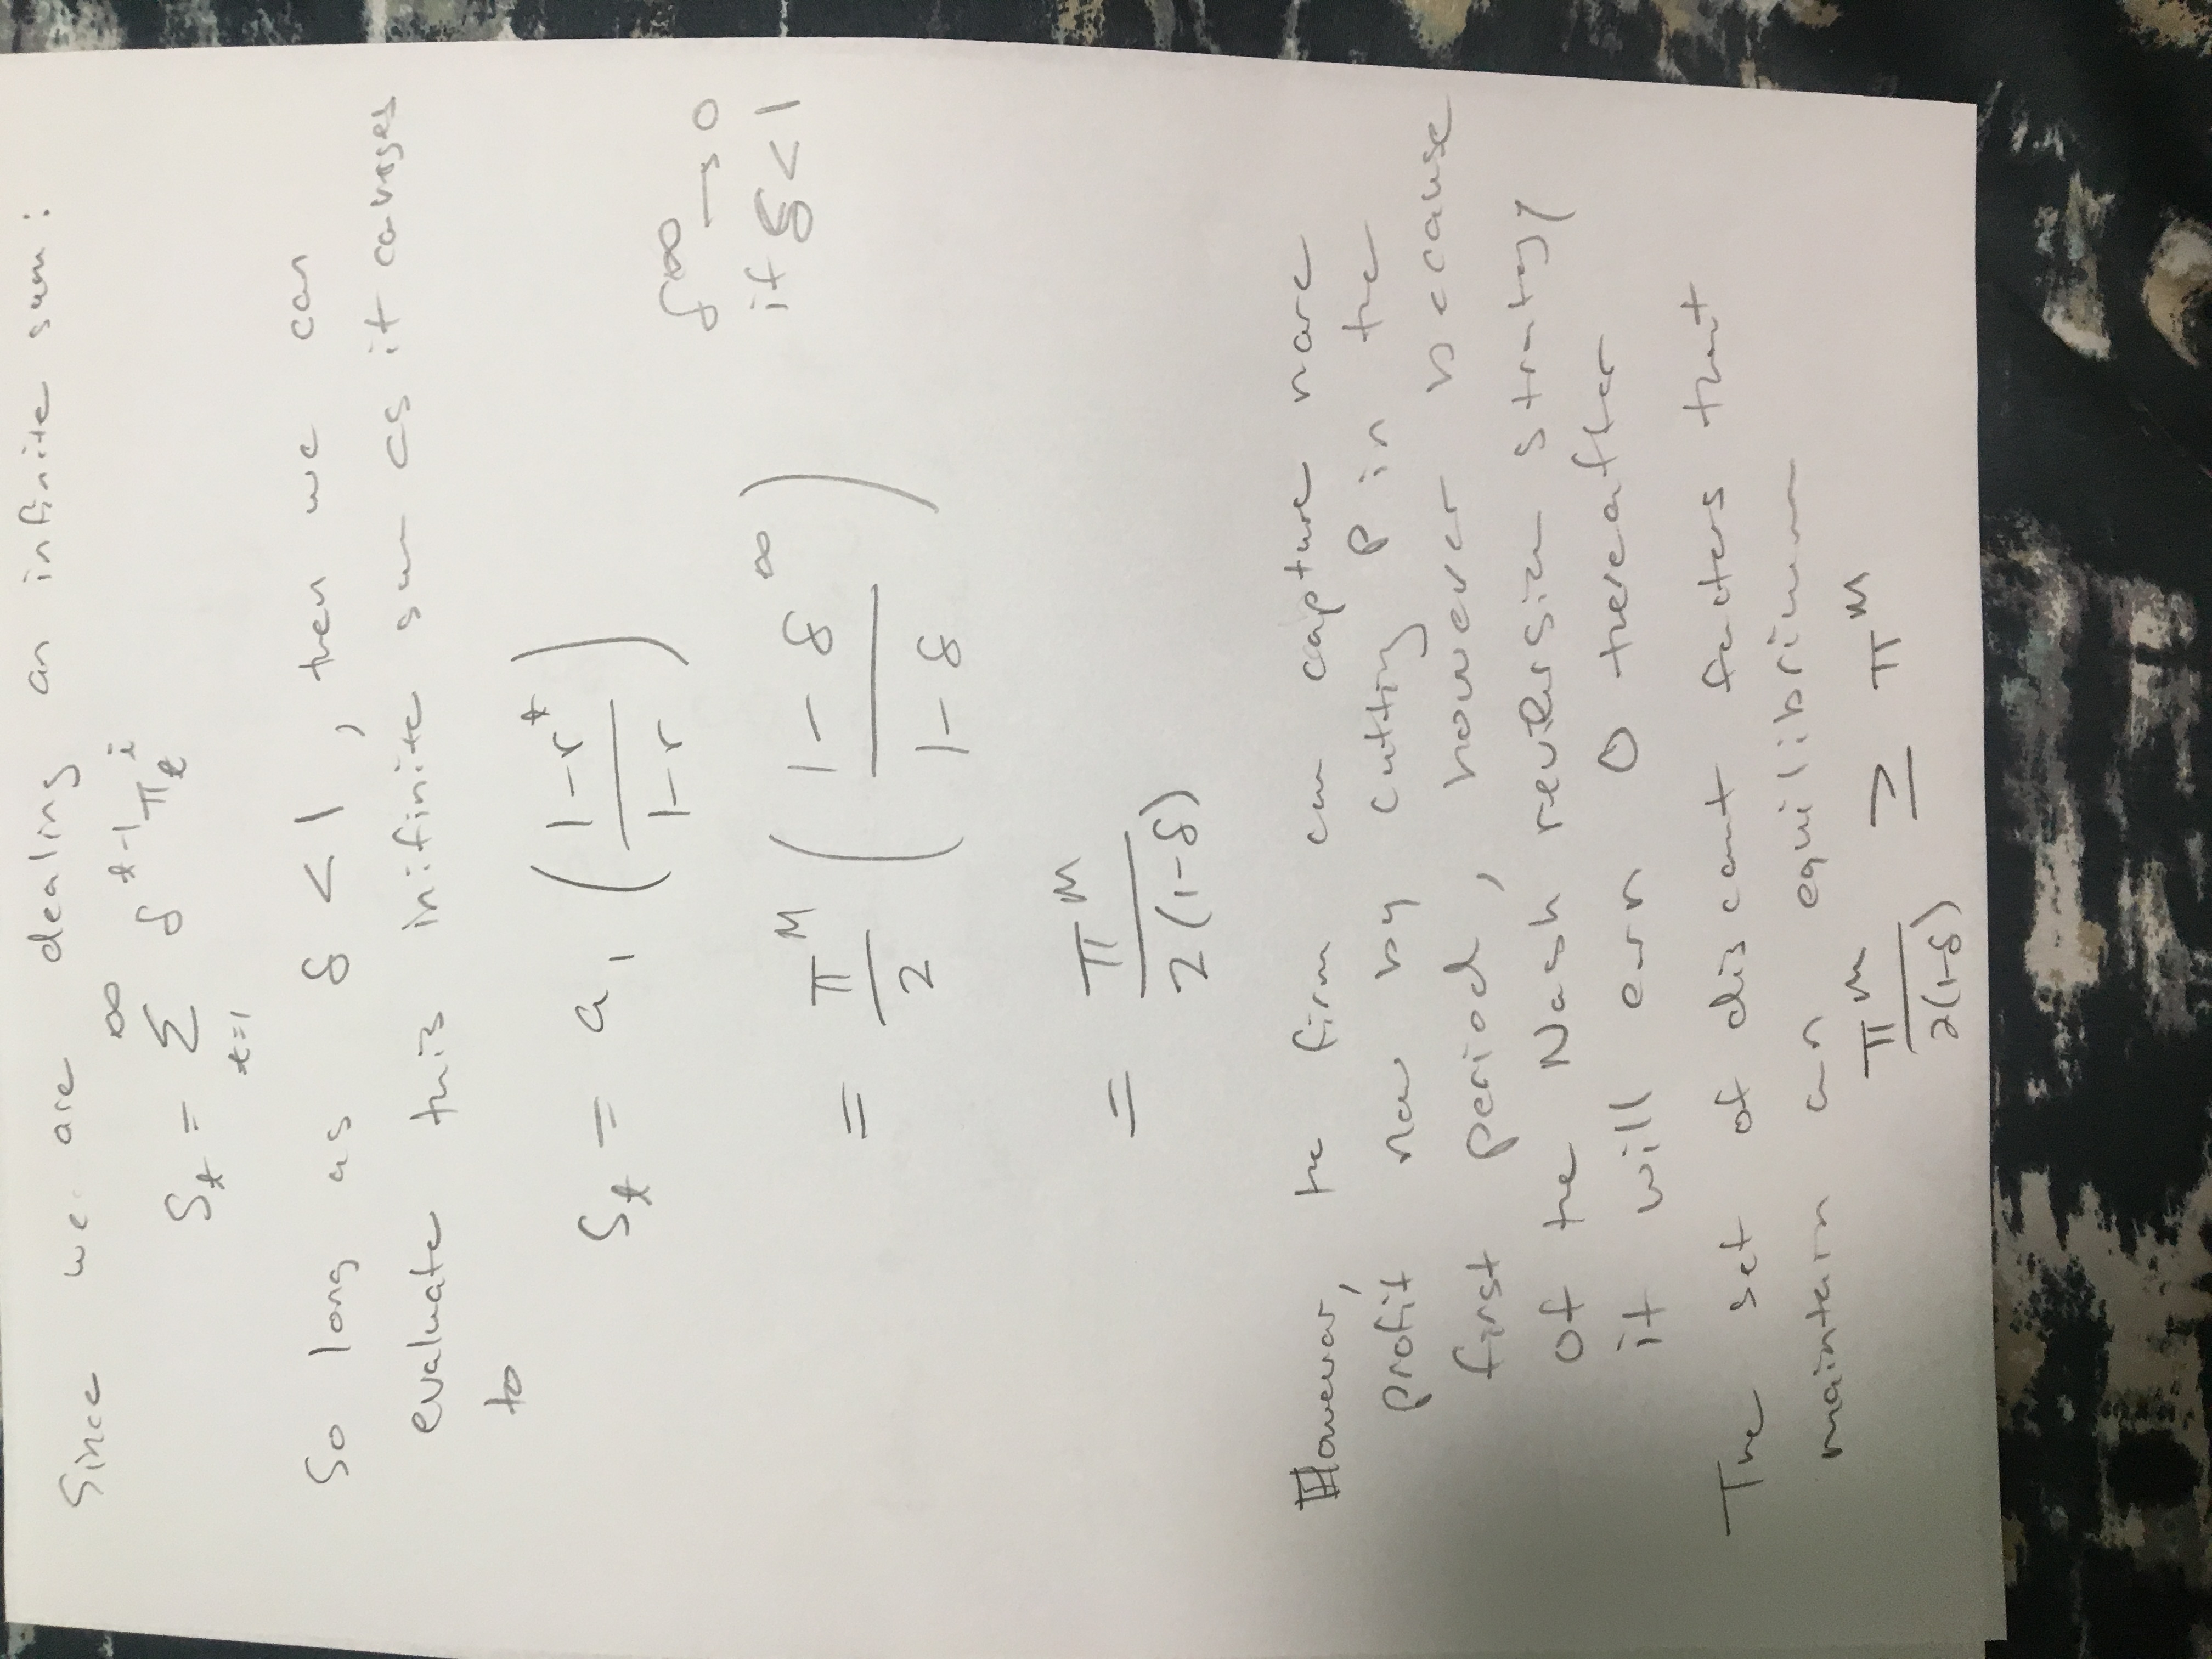 Since we are dealing an infinite sum:
S_t = ∑_{t=1}^{∞} δ^{t-1} π_t^i
So long as δ < 1, then we can
evaluate this inifinite sum as it converges
to
S_t = a_1 ( (1-r^t) / (1-r) )
δ^∞ → 0
if δ < 1
= π^M / 2 ( (1 - δ^∞) / (1 - δ) )
= π^M / 2(1-δ)
However, the firm can capture more
profit now by cutting P in the
first period, however because
of the Nash reversion strategy
it will earn 0 thereafter
The set of discount factors that
maintain an equilibrium
π^M / 2(1-δ) ≥ π^M